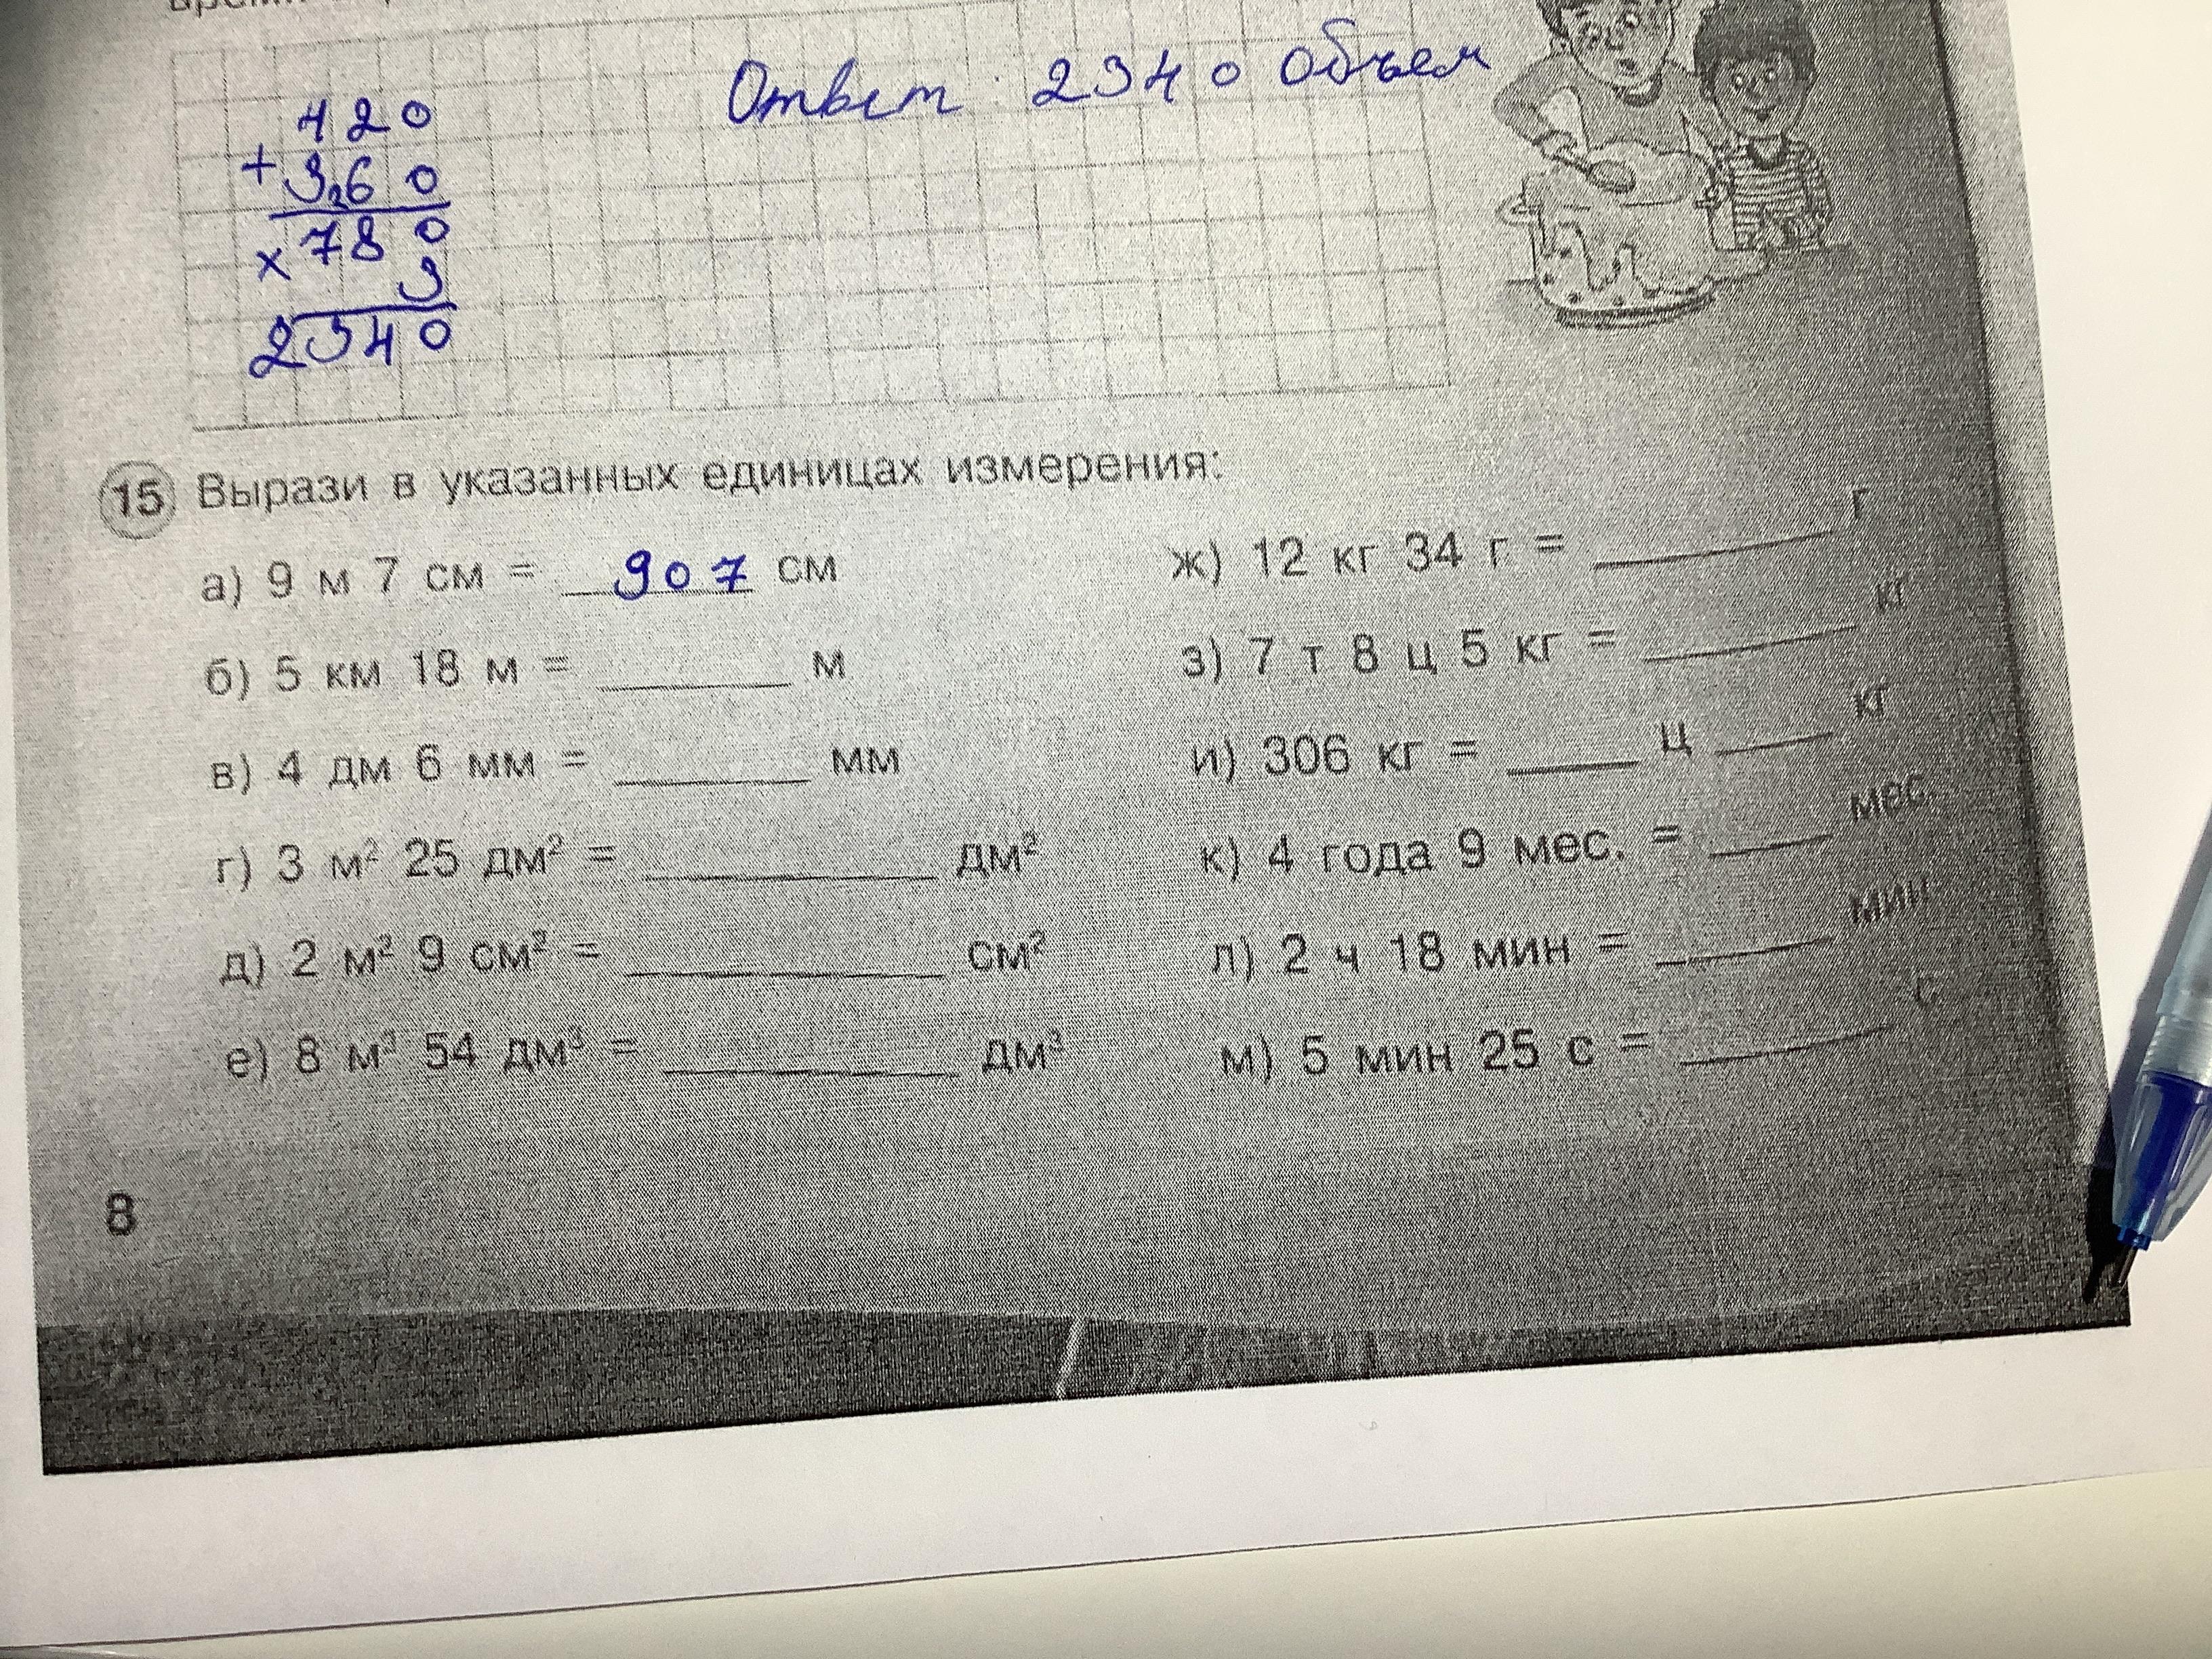 420
+ 360
× 780
3
2340
Ответ 2340 объем
15 Вырази в указанных единицах измерения:
а) 9 м 7 см = 907 см
б) 5 км 18 м = ______ м
в) 4 дм 6 мм = ______ мм
г) 3 м² 25 дм² = ______ дм²
д) 2 м² 9 см² = ______ см²
е) 8 м³ 54 дм³ = ______ дм³
ж) 12 кг 34 г = ______ г
з) 7 т 8 ц 5 кг = ______ кг
и) 306 кг = ____ ц ____ кг
к) 4 года 9 мес. = ____ мес.
л) 2 ч 18 мин = ____ мин
м) 5 мин 25 с = ______ с
8